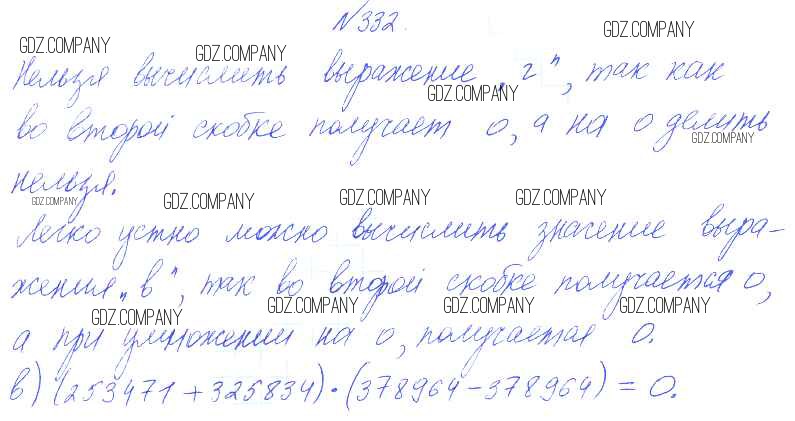 №332.
GDZ.COMPANY GDZ.COMPANY GDZ.COMPANY
Нельзя вычислить выражение „г", так как
GDZ.COMPANY
во второй скобке получает 0, а на 0 делить
GDZ.COMPANY
нельзя.
GDZ.COMPANY GDZ.COMPANY GDZ.COMPANY GDZ.COMPANY
Легко устно можно вычислить значение выра-
жения „в", так во второй скобке получается 0,
GDZ.COMPANY GDZ.COMPANY GDZ.COMPANY GDZ.COMPANY
а при умножении на 0, получается 0.
в) (253471+325834)·(378964-378964)=0.